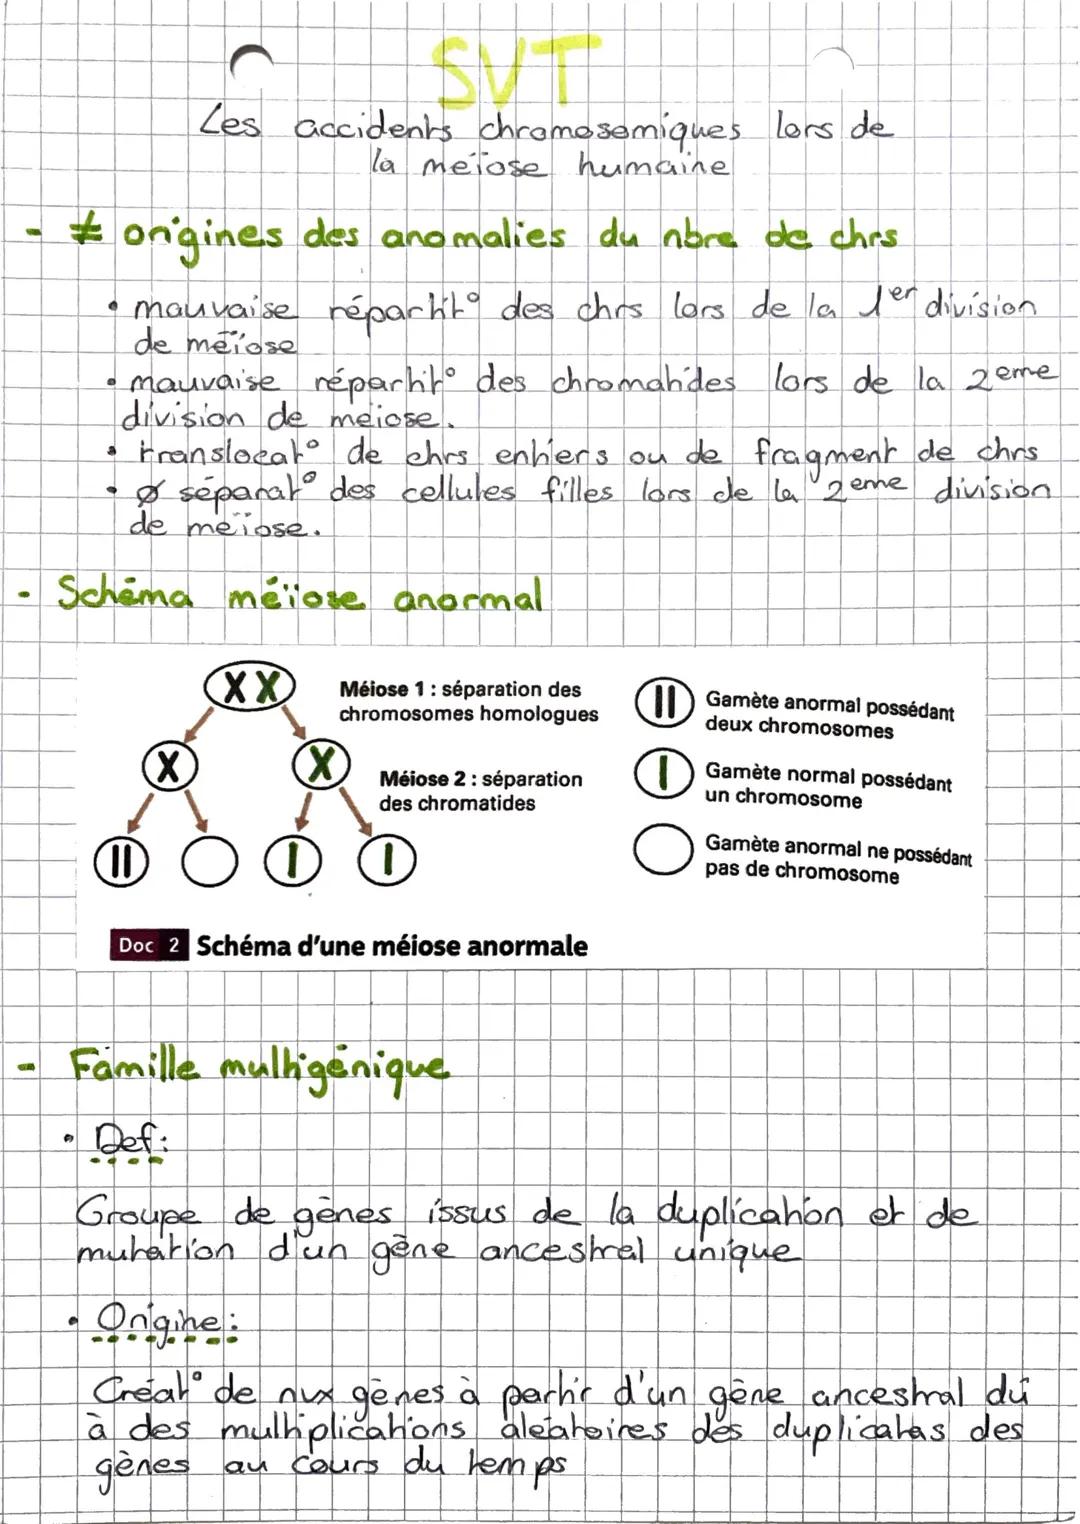 SVT
Les accidents chromosomiques lors de
la meïose humaine
- ≠ origines des anomalies du nbre de chrs
• mauvaise répartit° des chrs lors de la 1er division
de meïose
• mauvaise répartit° des chromatides lors de la 2eme
division de meiose.
• translocat° de chrs entiers ou de fragment de chrs
• ∅ séparat° des cellules filles lors de la 2eme division
de meïose.
- Schéma méïose anormal
XX
Méiose 1 : séparation des
chromosomes homologues
Gamète anormal possédant
deux chromosomes
X X
Méiose 2 : séparation
des chromatides
Gamète normal possédant
un chromosome
Gamète anormal ne possédant
pas de chromosome
Doc 2 Schéma d'une méiose anormale
- Famille multigénique
• Def:
Groupe de gènes issus de la duplication et de
mutation d'un gène ancestral unique
• Origine:
Créat° de nvx gènes à partir d'un gène ancestral dû
à des multiplications aléatoires des duplicatas des
gènes au cours du temps